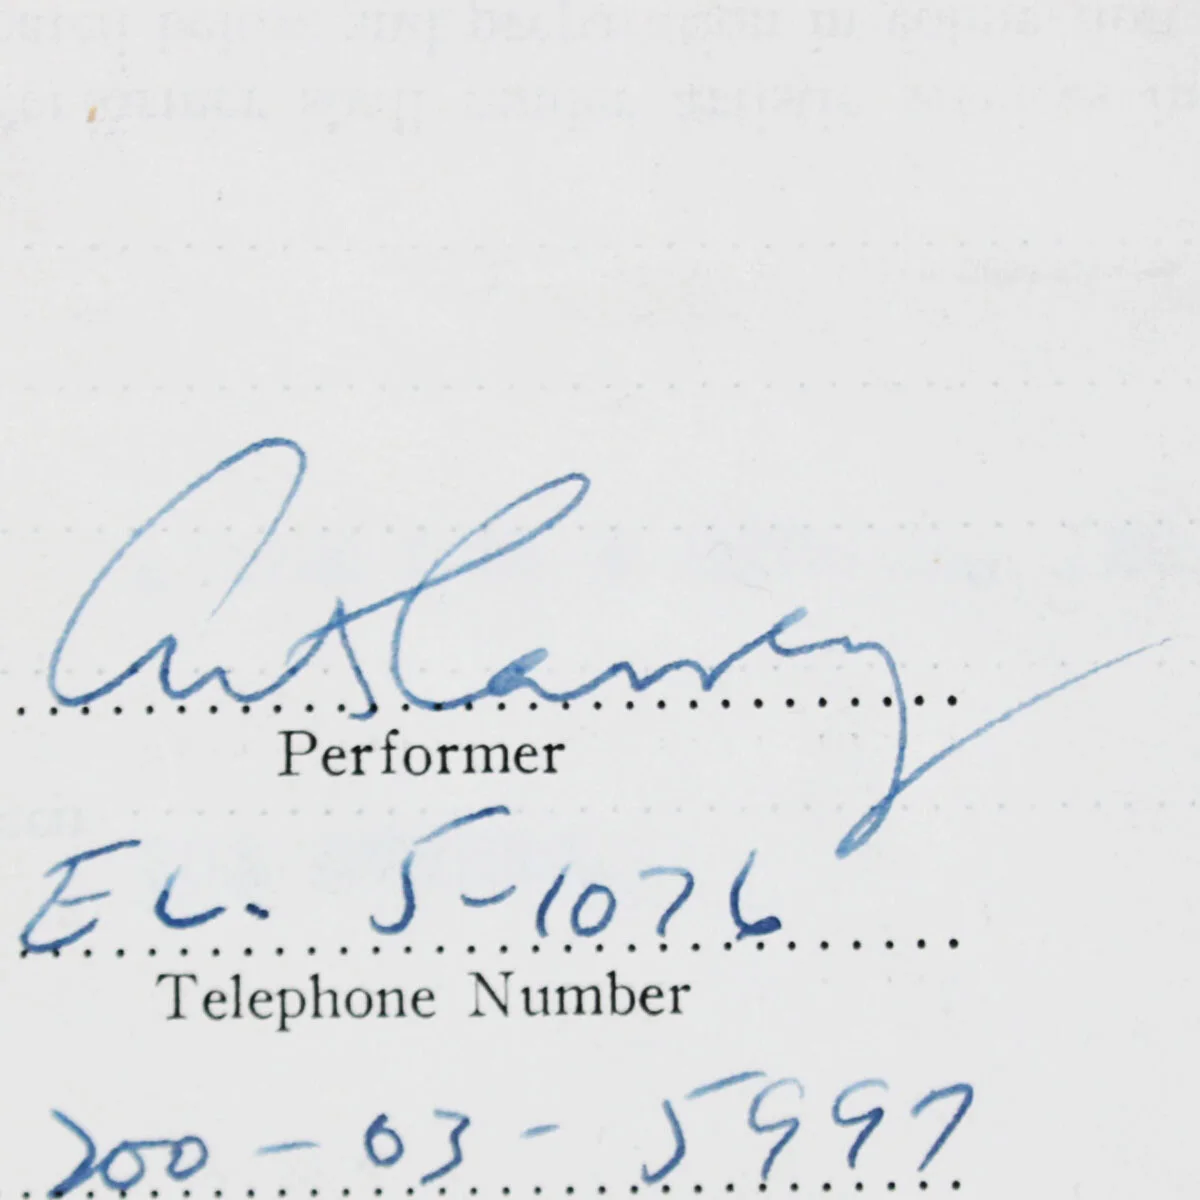 Art Carney
Performer
EL. 5-1076
Telephone Number
200-03-5997